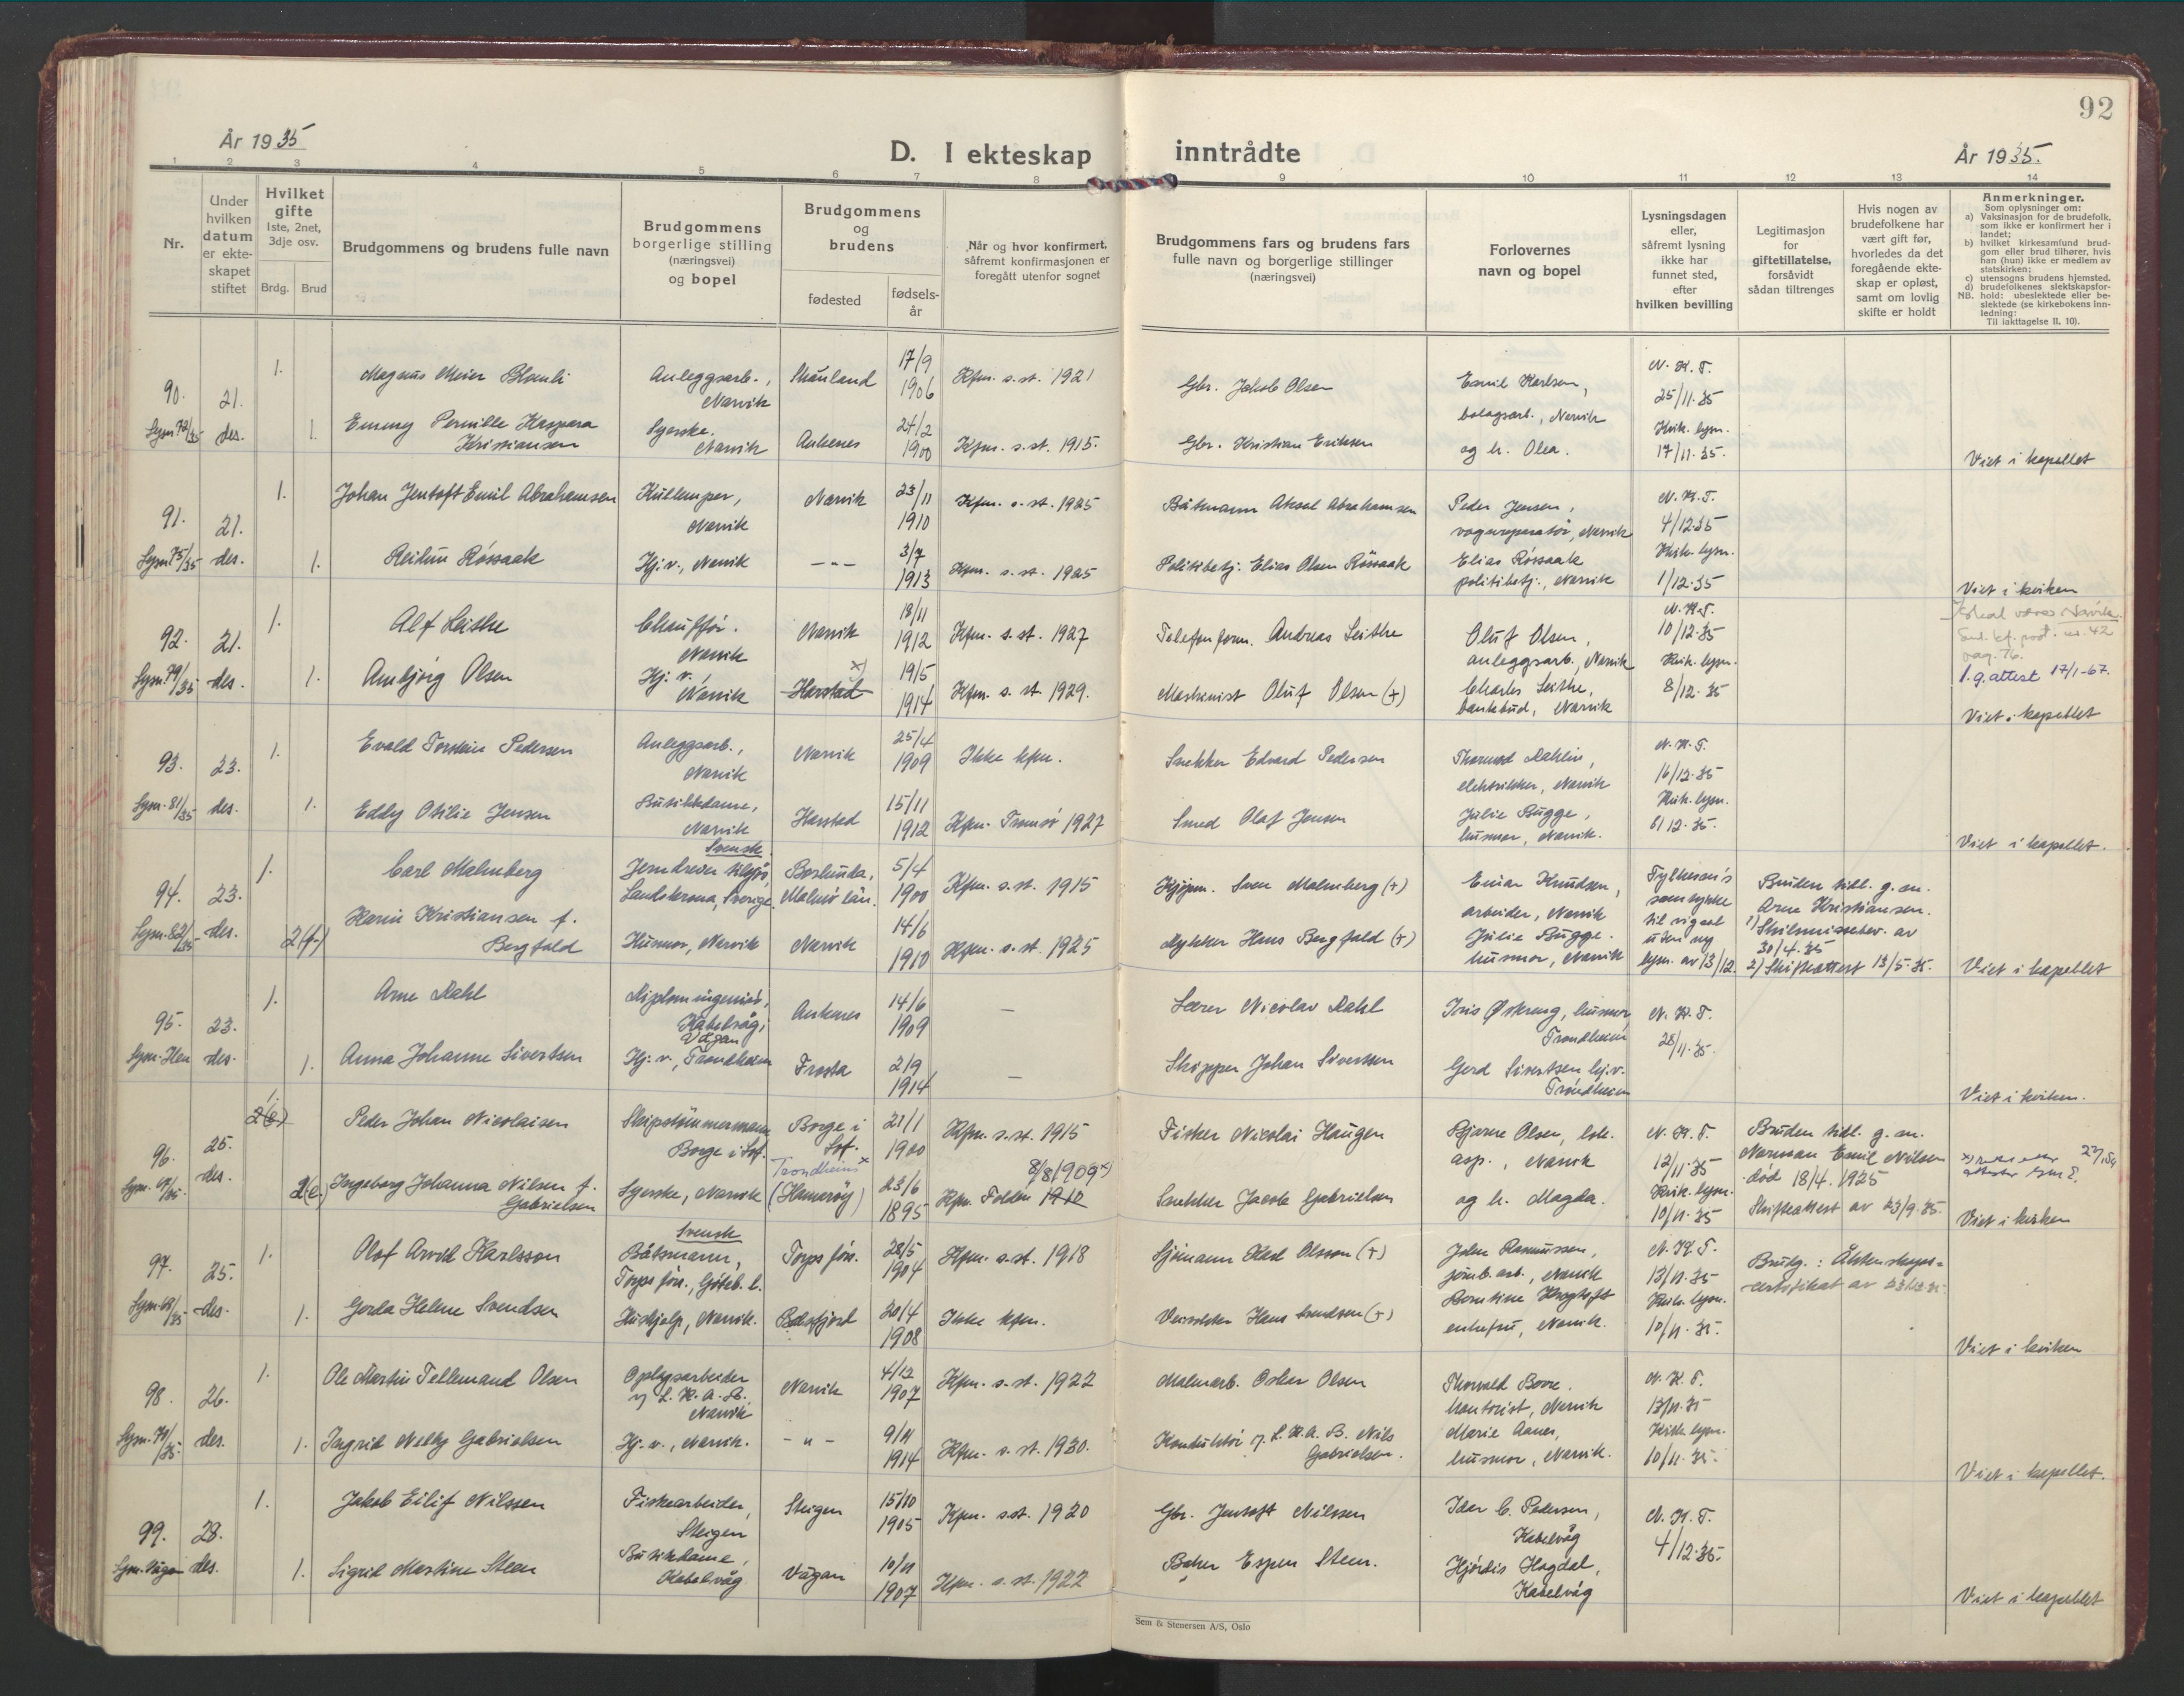 92
År 1935
D. I ekteskap inntrådte
År 1935.
1 2 3 4 5 6 7 8 9 10 11 12 13 14
Nr.
Under hvilken datum er ekte-skapet stiftet
Hvilket gifte
1ste, 2net, 3dje osv.
Brdg. Brud
Brudgommens og brudens fulle navn
Brudgommens borgerlige stilling (næringsvei) og bopel
Brudgommens og brudens
fødested
fødsels-år
Når og hvor konfirmert, såfremt konfirmasjonen er foregått utenfor sognet
Brudgommens fars og brudens fars fulle navn og borgerlige stillinger (næringsvei)
Forlovernes navn og bopel
Lysningsdagen eller, såfremt lysning ikke har funnet sted, efter hvilken bevilling
Legitimasjon for giftetillatelse, forsåvidt sådan tiltrenges
Hvis nogen av brudefolkene har vært gift før, hvorledes da det foregående ekte-skap er opløst, samt om lovlig skifte er holdt
Anmerkninger.
Som oplysninger om:
a) Vaksinasjon for de brudefolk. som ikke er konfirmert her i landet;
b) hvilket kirkesamfund brud-gom eller brud tilhører, hvis han (hun) ikke er medlem av statskirken;
c) utensogns brudens hjemsted.
d) brudefolkenes slektskapsfor-
NB. hold: ubeslektede eller be-slektede (se kirkebokens Inn-ledning:
Til iakttagelse II, 10).
90. 21. des. 1. Magnus Meier Blomli Anleggsarb., Narvik Skånland 17/9 1906 Kfm. s. st. 1921 Gbr. Jakob Olsen Emil Karlsen, bolagsarb., Narvik N. K. T. 25/11.35
Lysn. 72/35 1. Emmy Pernille Kaspara Kristiansen Syerske. Narvik Ankenes 24/2 1900 Kfm. s. st. 1915. Gbr. Kristian Eriksen og h. Olea. Kirk. lysn. 17/11.35. Viet i kapellet
91. 21. des. 1. Johan Jentoft Emil Abrahamsen Kullemper, Narvik Narvik 23/11 1910 Kfm. s. st. 1925 Båtmann Aksel Abrahamsen Peder Jensen, vognreparatør, Narvik N. K. T. 4/12.35
Lysn. 75/35 1. Reidun Róssaak Hj.v., Narvik -"- 3/7 1913 Kfm. s. st. 1925 Politibetj. Elias Olsen Róssaak Elias Róssaak politibetj., Narvik Kirk. lysn. 1/12.35 Viet i kirken
92. 21. des. 1. Alf Leithe Chauffór. Narvik Narvik 18/11 1912 Kfm. s. st. 1927 Telefonform. Andreas Leithe Oluf Olsen, anleggsarb., Narvik N. K. T. 10/12.35 skal være Narvik.
Lysn. 79/35 1. Ambjórg Olsen Hj. v., Narvik Harstad x) 19/5 1914 Kfm. s. st. 1929. Maskinist Oluf Olsen (+) Charles Leithe, bankbud, Narvik Kirk. lysn. 8/12.35 pag. 76. 1. g. attest 17/1-67. Viet i kapellet
93. 23. des. 1. Evald Torstein Pedersen Anleggsarb., Narvik Narvik 25/4 1909 Ikke kfm. Snekker Edvard Pedersen Thorvald Dahlin, elektriker, Narvik N. K. T. 16/12.35
Lysn. 81/35 1. Eddy Otilie Jensen Butikkdame, Narvik Harstad 15/11 1912 Kfm. Tromsó 1927 Smed Olaf Jensen Julie Bugge, husmor, Narvik. Kirk. lysn. 6/12.35. Viet i kapellet.
94. 23. des. 1. Carl Malmberg Svensk. Landskrona, Sverige. Boslunda, Malmó län. 5/4 1900 Kfm. s. st. 1915 Kjøpm. Sven Malmberg (+) Einar Knudsen, arbeider, Narvik Fylkesm's samtykke til vigsel uten ny lysn. av 13/12. Bruden tidl. g. m. Arne Kristiansen.
Lysn. 82/35 2(f.) Karin Kristiansen f. Bergfald Husmor, Narvik Narvik 14/6 1910 Kfm. s. st. 1925 Rykker Hans Bergfald (+) Julie Bugge. husmor, Narvik 1) Skilsmissebev. av 30/4.35 2) Skifteattest 13/5.35. Viet i kapellet
95. 23. des. 1. Arne Dahl Diplomingeniór, Kabelvåg, Vågan Ankenes 14/6 1909 — Lærer Nicolav Dahl Iris Øskrug, husmor, Trondheim N. K. T. 28/11.35.
1. Anna Johanne Sivertsen Hj. v., Trondheim Frosta 2/9 1914 — Skipper Johan Sivertsen Gerd Sivertsen hj.v. Trondheim Viet i kirken.
96. 25. des. 1. 2(e) Peder Johan Nicolaisen Skipstømmermann Borge i Lof. Borge i Lof. 21/1 1900 Kfm. s. st. 1915 Fisker Nicolai Haugen Bjarne Olsen, lok. asp., Narvik N. K. T. 12/11.35 Bruden tidl. g. m. Norman Emil Nilsen død 18/4.1925
Lysn. 67/35. 2(e) Ingeborg Johanna Nilsen f. Gabrielsen Syerske, Narvik Trondheim x (Hamarøy) 23/6 1895 8/8 1909 x) Kfm. Folden 1912 Snekker Jacob Gabrielsen og h. Magda. Kirk. lysn. 10/11.35 Skifteattest av 23/9.35. Viet i kirken
97. 25. des. 1. Olof Arvid Karlsson Svensk Båtsmann, Torps förs., Göteb. l. Torps förs. 28/5 1904 Kfm. s. st. 1918 Sjómann Karl Olsson (+) John Rasmussen, jernb.arb., Narvik N. K. T. 13/11.35 Brudg.: Äktenskaps=certifikat av
Lysn. 68/35 1. Gerda Helene Svendsen Hushjelp, Narvik. Balsfjord 20/4 1908 Ikke kfm. Hans Svendsen (+) Berntine Krogtoft enkefru, Narvik. Kirk. lysn. 10/11.35. Viet i kirken
98. 26. des. 1. Ole Martin Tellemand Olsen Oplagsarbeider v/ L. K. A. B. Narvik Narvik 4/12 1907 Kfm. s. st. 1922 Malmarb. Oskar Olsen Thorvald Boore. kontorist, Narvik N. K. T. 13/11.35
Lysn. 71/35 1. Ingrid Nelly Gabrielsen Hj. v., Narvik. -"- 9/11 1914 Kfm. s. st. 1930. Konduktór v. L. K. A. B. Nils Gabrielsen. Marie Aanes, husmor, Narvik. Kirk. lysn. 10/11.35. Viet i kapellet.
99. 28. des. 1. Jakob Eilif Nilssen Fiskearbeider, Steigen Steigen 15/10 1905 Kfm. s.st. 1920 Gbr. Jentoft Nilssen Idar C. Pedersen, Kabelvåg N. K. T. 4/12.35.
Lysn. Vågan 1. Sigrid Martine Steen Butikdame, Kabelvåg Vågan 10/11 1907 Kfm. s. st. 1922 Baker Espen Steen. Hjórdis Hagdal, Kabelvåg Viet i kapellet
Sem & Stenersen A/S, Oslo